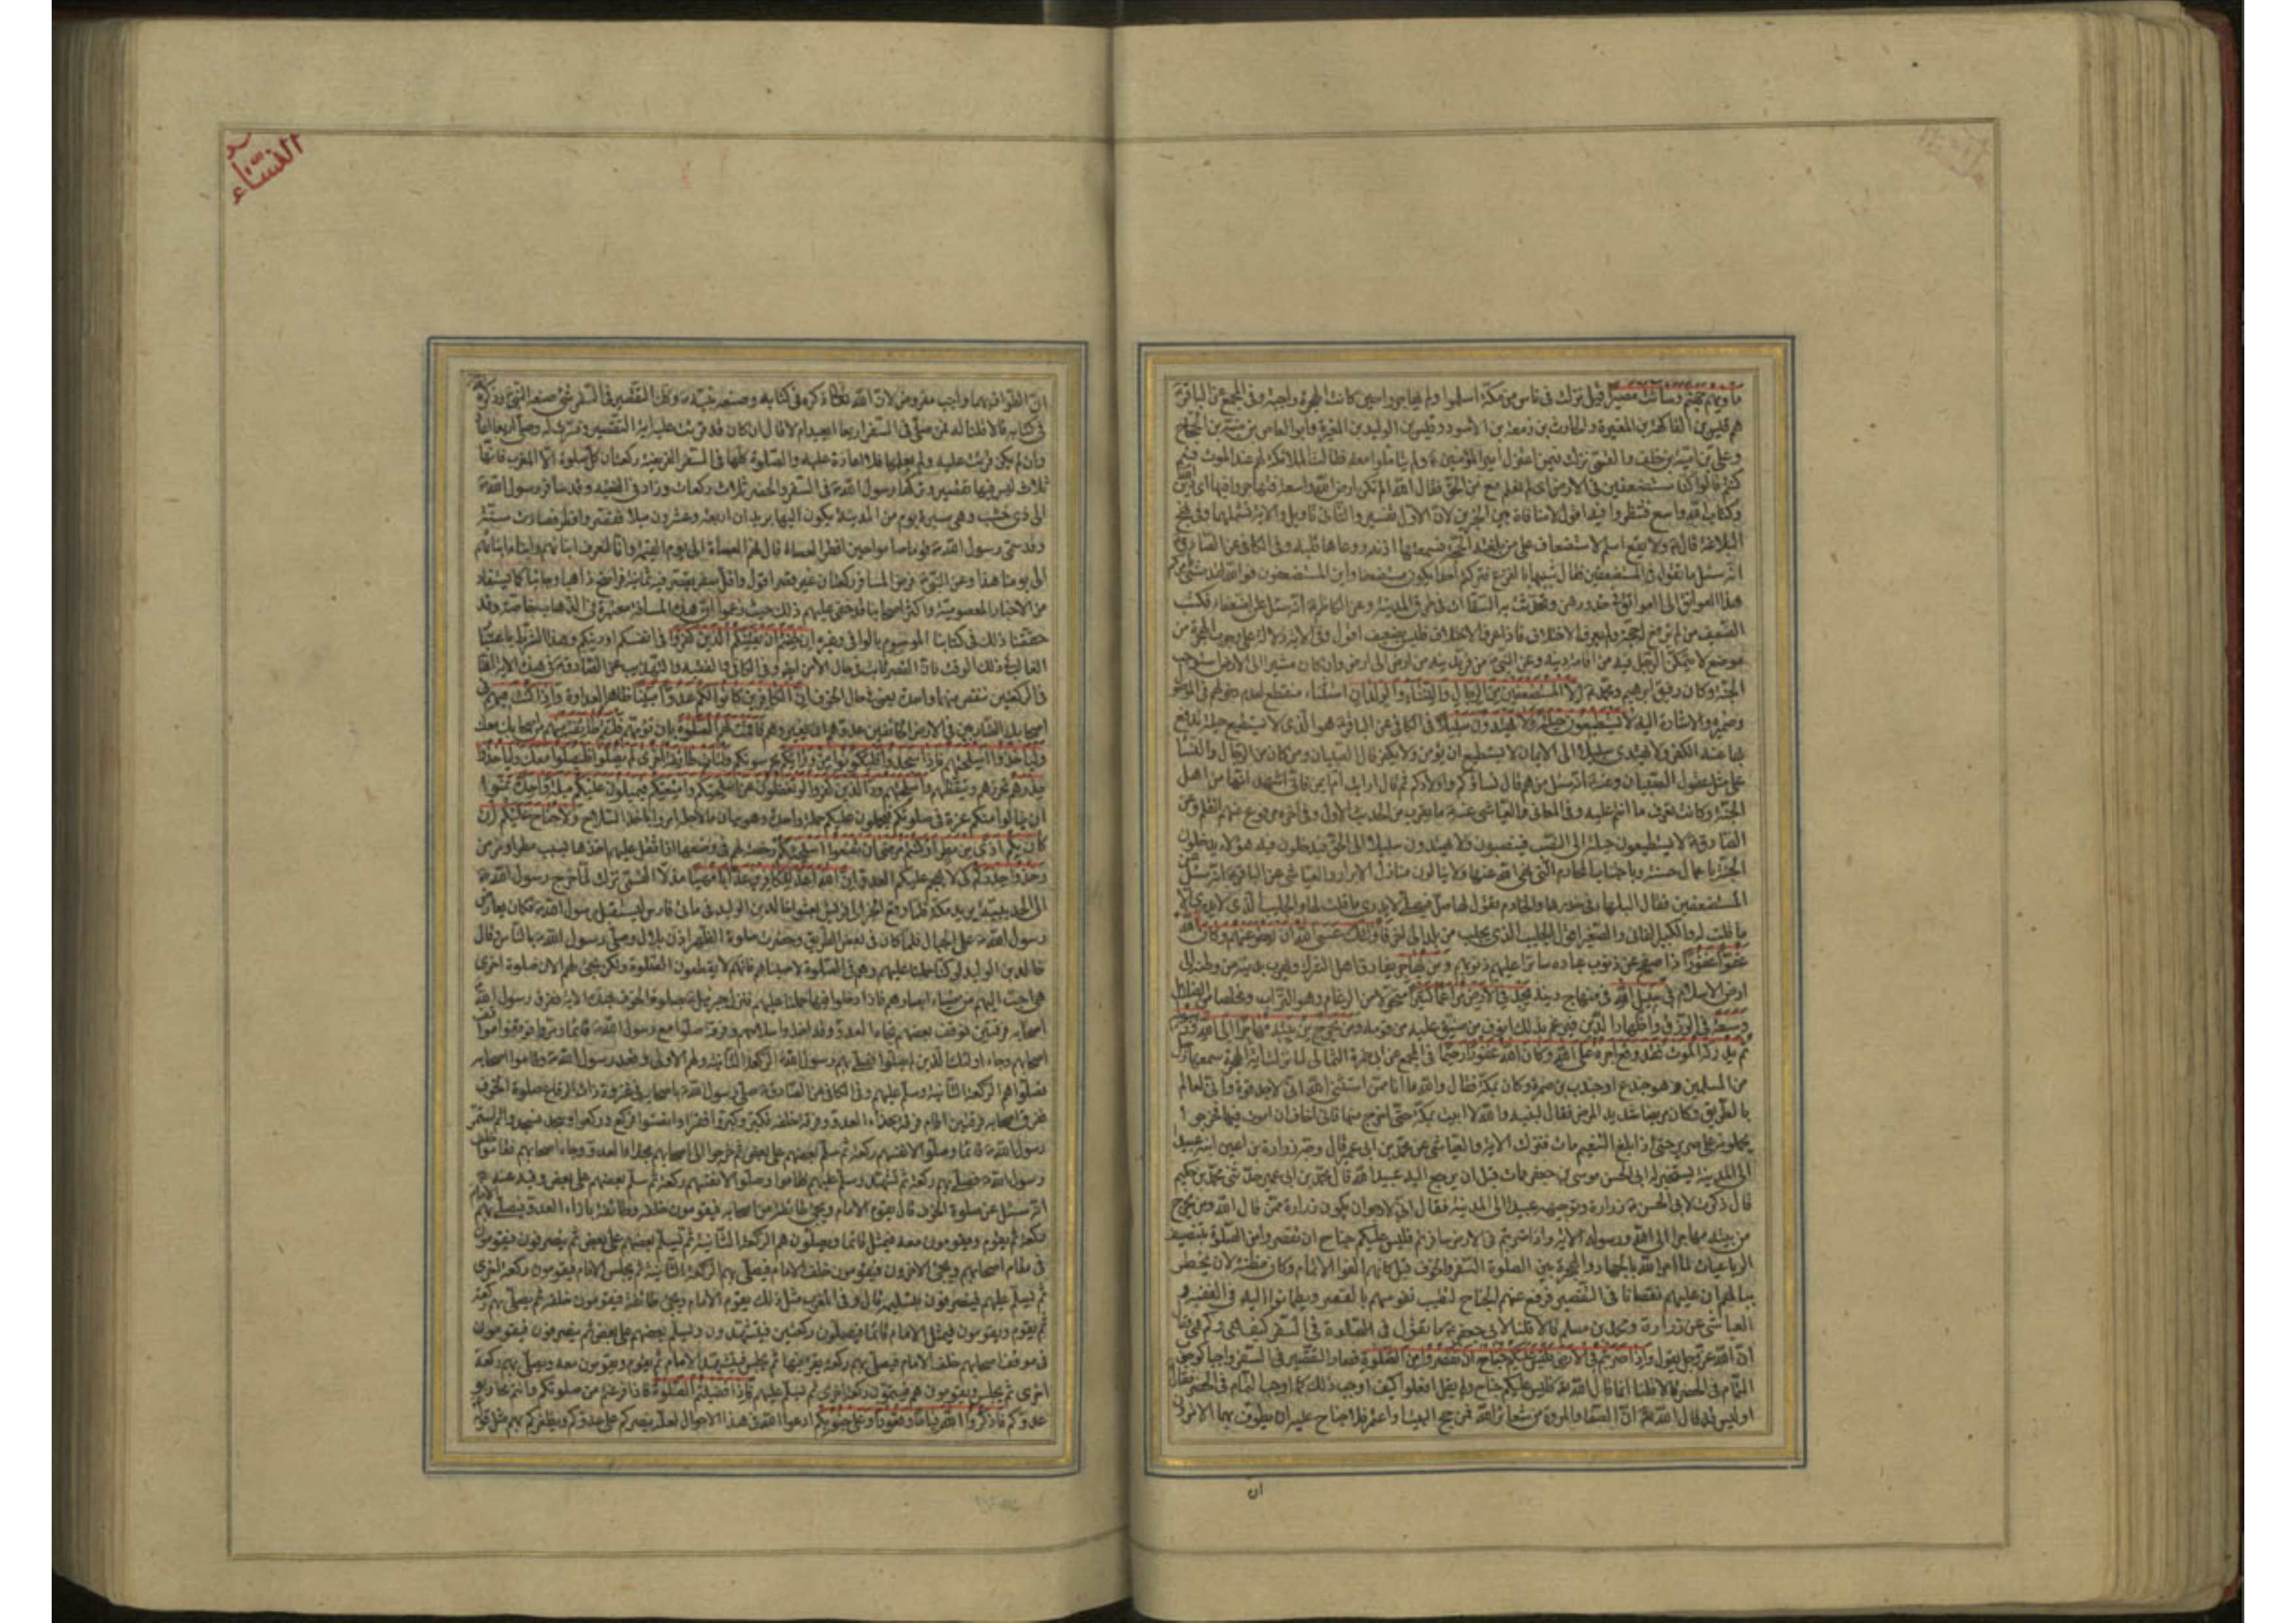 مأويهم جهنم وساءت مصيرا قيل نزلت في ناس من مكة اسلموا ولم يهاجروا حين كانت الهجرة واجبة وفي المجمع عن الباقر ع
هم قيس بن الفاكهة بن المغيرة والحارث بن زمعة بن الاسود وقيس بن الوليد بن المغيرة وابو العاص بن منبه بن الحجاج
وعلي بن امية بن خلف والقمي نزلت فيمن اعتزل امير المؤمنين ع ولم يقاتلوا معه فقالت الملائكة لهم عند الموت فيم
كنتم قالوا كنا مستضعفين في الارض اي لم نعلم مع من الحق فقال الله الم تكن ارض الله واسعة فتهاجروا فيها اي دين الله
وكتاب الله واسع فتنظروا فيه اقول لا منافاة بين الخبرين لان الاول تفسير والثاني تاويل والاية تشملهما وفي نهج
البلاغة قال ع ولا يقع اسم الاستضعاف على من بلغته الحجة فسمعتها اذنه ووعاها قلبه وفي الكافي عن الصادق ع
انه سئل ما تقول في المستضعفين فقال شبيها بالفزع فتركتم احدا يكون مستضعفا واين المستضعفون فوالله لقد مشى بامركم
هذا العواتق الى العواتق في خدورهن وتحدث به السقاات في طريق المدينة وعن الكاظم ع انه سئل عن الضعفاء فكتب
الضعيف من لم ترفع له حجة ولم يعرف الاختلاف فاذا عرف الاختلاف فليس بضعيف اقول وفي الاية دلالة على وجوب الهجرة من
موضع لا يتمكن الرجل فيه من اقامة دينه وعن النبي ص من فر بدينه من ارض الى ارض وان كان شبرا من الارض استوجب
الجنة وكان رفيق ابرهيم ومحمد ع الا المستضعفين من الرجال والنساء والولدان استثناء منقطع لعدم دخولهم في الموصول
وضميره والاشارة اليه لا يستطيعون حيلة ولا يهتدون سبيلا في الكافي عن الباقر ع هو الذي لا يستطيع حيلة يدفع
بها عنه الكفر ولا يهتدي سبيلا الى الايمان لا يستطيع ان يؤمن ولا يكفر قال الصبيان ومن كان من الرجال والنساء
على مثل عقول الصبيان وعنه ع انه سئل من هم قال نساؤكم واولادكم ثم قال ارايت ام ايمن فاني اشهد انها من اهل
الجنة وكانت تعرف ما انتم عليه وفي المعاني والعياشي عنه ع ما يقرب من الحديث الاول وفي اخره مرفوع عنهم القلم وعن
الصادق ع لا يستطيعون حيلة الى النصب فينصبون ولا يهتدون سبيلا الى الحق فيدخلون فيه هؤلاء يدخلون
الجنة باعمال حسنة وباجتناب المحارم التي نهى الله عنها ولا ينالون منازل الابرار والعياشي عن الباقر ع انه سئل عن
المستضعفين فقال البلهاء في خدرها والخادم تقول لها صلي فتصلي لا تدري الا ما قلت لها والجليب الذي لا يدري الا
ما قلت له والكبير الفاني والصغير اقول الجليب الذي يجلب من بلد الى اخر فاولئك عسى الله ان يعفو عنهم وكان الله
عفوا غفورا ذا صفح عن ذنوب عباده ساترا عليهم ذنوبهم ومن يهاجر يفارق اهل الشرك ويهرب بدينه من وطنه الى
ارض الاسلام في سبيل الله في منهاج دينه يجد في الارض مراغما كثيرا متحولا من الرغام وهو التراب ومخلصا من الضلال
وسعة في الرزق واظهار الدين ومن يخرج من بيته مهاجرا الى الله ورسوله
ثم يدركه الموت فقد وقع اجره على الله وكان الله غفورا رحيما في المجمع عن ابي حمزة الثمالي لما نزلت اية الهجرة سمعها رجل
من المسلمين وهو جندع او جندب بن ضمرة وكان بمكة فقال والله ما انا ممن استثنى الله اني لاجد قوة واني لعالم
بالطريق وكان مريضا شديد المرض فقال لبنيه والله لا ابيت بمكة حتى اخرج منها فاني اخاف ان اموت فيها فخرجوا
يحملونه على سرير حتى اذا بلغ التنعيم مات فنزلت الاية والعياشي عن محمد بن ابي عمير قال وجه زرارة بن اعين ابنه عبيدا
الى المدينة ليستخبر له خبر ابي الحسن موسى بن جعفر فمات قبل ان يرجع اليه عبيد الله قال محمد بن ابي عمير حدثني محمد بن حكيم
قال ذكرت لابي الحسن ع زرارة وتوجيهه عبيدا الى المدينة فقال اني لارجو ان يكون زرارة ممن قال الله ومن يخرج
من بيته مهاجرا الى الله ورسوله الاية واذا ضربتم في الارض سافرتم فليس عليكم جناح ان تقصروا من الصلوة بتنصيف
الرباعيات لما امر الله بالجهاد والهجرة بين الصلوة السفر والخوف قيل كانهم الفوا الاتمام وكان مظنة لان يخطر
ببالهم ان عليهم نقصانا في التقصير فرفع عنهم الجناح لتطيب نفوسهم بالقصر ويطمانوا اليه وفي الفقيه و
العياشي عن زرارة ومحمد بن مسلم قالا قلنا لابي جعفر ع ما تقول في الصلوة في السفر كيف هي وكم هي فقال
ان الله عز وجل يقول واذا ضربتم في الارض فليس عليكم جناح ان تقصروا من الصلوة فصار التقصير في السفر واجبا كوجوب
التمام في الحضر قالا قلنا انما قال الله تع فليس عليكم جناح ولم يقل افعلوا كيف اوجب ذلك كما اوجب التمام في الحضر فقال
اوليس قد قال الله تع ان الصفا والمروة من شعائر الله فمن حج البيت او اعتمر فلا جناح عليه ان يطوف بهما الا ترون
ان
النساء
ان الطواف بهما واجب مفروض لان الله تعالى ذكره في كتابه وصنعه نبيه ص وكذلك التقصير في السفر شيء صنعه النبي ص وذكره الله
في كتابه قالا قلنا له فمن صلى في السفر اربعا ايعيد ام لا قال ان كان قد قرئت عليه اية التقصير وفسرت له وصلى اربعا اعاد
وان لم يكن قرئت عليه ولم يعلمها فلا اعادة عليه والصلوة كلها في السفر الفريضة ركعتان كل صلوة الا المغرب فانها
ثلاث ليس فيها تقصير وتركها رسول الله ص في السفر والحضر ثلاث ركعات وزاد في الفقيه وقد سافر رسول الله ص
الى ذي خشب وهي مسيرة يوم من المدينة يكون اليها بريدان اربعة وعشرون ميلا فقصر وافطر فصارت سنة
وقد سمى رسول الله ص قوما صاموا حين افطر العصاة قال فهم العصاة الى يوم القيمة وانا لنعرف ابناءهم وابناء ابنائهم
الى يومنا هذا وعن النبي ص فرض المسافر ركعتان غير قصر اقول واقل سفر يقصر فيه ثمانية فراسخ ذاهبا وجائيا كما يستفاد
من الاخبار المعصومية واكثر اصحابنا قد خفي عليهم ذلك حيث زعموا ان هذه المسافة معتبرة في الذهاب خاصة وقد
حققنا ذلك في كتابنا الموسوم بالوافي وغيره ان خفتم ان يفتنكم الذين كفروا في انفسكم او دينكم وهذا الشرط باعتبار
الغالب في ذلك الوقت فان القصر ثابت في حال الامن ايضا وفي الكافي والفقيه والتهذيب عن الصادق ع في هذه الاية انها
في الركعتين تنقص منهما واحدة يعني في حال الخوف ان الكافرين كانوا لكم عدوا مبينا ظاهر العداوة واذا كنت فيهم في
اصحابك الضاربين في الارض الخائفين عدوهم ان يغيروهم فاقمت لهم الصلوة بان تؤمهم فلتقم طائفة منهم من اصحابك معك
ولياخذوا اسلحتهم فاذا سجدوا فليكونوا من ورائكم يحرسونكم ولتات طائفة اخرى لم يصلوا فليصلوا معك ولياخذوا
حذرهم تحرزهم وتيقظهم واسلحتهم ود الذين كفروا لو تغفلون عن اسلحتكم وامتعتكم فيميلون عليكم ميلة واحدة تمنوا
ان ينالوا منكم غرة في صلوتكم فيحملون عليكم حملة واحدة وهو بيان ما لاجله امروا باخذ السلاح ولا جناح عليكم ان
كان بكم اذى من مطر او كنتم مرضى ان تضعوا اسلحتكم رخصة لهم في وضعها اذا ثقل عليهم اخذها بسبب مطر او مرض
وخذوا حذركم كي لا يهجم عليكم العدو ان الله اعد للكافرين عذابا مهينا مذلا القمي نزلت لما خرج رسول الله ص
الى الحديبية يريد مكة فلما وقع الخبر الى قريش بعثوا خالد بن الوليد في مائتي فارس ليستقبل رسول الله ص فكان يعارض
رسول الله ص على الجبال فلما كان في بعض الطريق وحضرت صلوة الظهر اذن بلال وصلى رسول الله ص بالناس فقال
خالد بن الوليد لو كنا حملنا عليهم وهم في الصلوة لاصبناهم فانهم لا يقطعون الصلوة ولكن يجيء لهم الان صلوة اخرى
هي احب اليهم من ضياء ابصارهم فاذا دخلوا فيها حملنا عليهم فنزل جبرئيل ع بصلوة الخوف بهذه الاية ففرق رسول الله ص
اصحابه فرقتين فوقف بعضهم تجاه العدو وقد اخذوا سلاحهم وفرقة صلوا مع رسول الله ص قائما ومروا فوقفوا مواقف
اصحابهم وجاء اولئك الذين لم يصلوا فصلى بهم رسول الله الركعة الثانية ولهم الاولى وقعد رسول الله ص وقاموا اصحابه
فصلوا هم الركعة الثانية وسلم عليهم وفي الكافي عن الصادق ع صلى رسول الله ص باصحابه في غزوة ذات الرقاع صلوة الخوف
ففرق اصحابه فرقتين اقام فرقة بازاء العدو وفرقة خلفه فكبر وكبروا فقرا وانصتوا فركع وركعوا وسجد فسجدوا ثم استمر
رسول الله ص قائما وصلوا لانفسهم ركعة ثم سلم بعضهم على بعض ثم خرجوا الى اصحابهم فقاموا بازاء العدو وجاء اصحابهم فقاموا خلف
رسول الله ص فصلى بهم ركعة ثم تشهد وسلم عليهم فقاموا وصلوا لانفسهم ركعة ثم سلم بعضهم على بعض وفيه عنه ع
انه سئل عن صلوة الخوف قال يقوم الامام ويجيء طائفة من اصحابه فيقومون خلفه وطائفة بازاء العدو فيصلي بهم الامام
ركعة ثم يقوم ويقومون معه فيمثل قائما ويصلون هم الركعة الثانية ثم يسلم بعضهم على بعض ثم ينصرفون فيقومون
في مقام اصحابهم ويجيء الاخرون فيقومون خلف الامام فيصلي بهم الركعة الثانية ثم يجلس الامام فيقومون ركعة اخرى
ثم يسلم عليهم فينصرفون بتسليمه قال وفي المغرب مثل ذلك يقوم الامام ويجيء طائفة فيقومون خلفه ثم يصلي بهم ركعة
ثم يقوم ويقومون فيمثل الامام قائما فيصلون ركعتين فيتشهدون ويسلم بعضهم على بعض ثم ينصرفون فيقومون
في موقف اصحابهم خلف الامام فيصلي بهم ركعة يقرا فيها ثم يجلس فيتشهد الامام ثم يقوم ويقومون معه ويصلي بهم ركعة
اخرى ثم يجلس ويقومون هم فيتمون ركعة اخرى ثم يسلم عليهم فاذا قضيتم الصلوة فاذا فرغتم من صلوتكم وانتم محاربو
عدوكم فاذكروا الله قياما وقعودا وعلى جنوبكم ادعوا الله في هذه الاحوال لعله ينصركم على عدوكم ويظفركم بهم مثل قوله